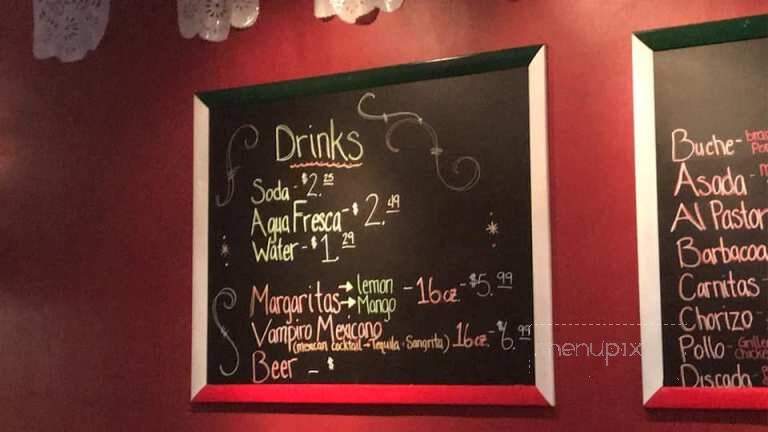 Drinks
Soda - $2.25
Agua Fresca - $2.49
Water - $1.29
Margaritas → lemon - 16oz - $5.99
→ Mango
Vampiro Mexicano 16oz - $6.99
(mexican cocktail → Tequila + Sangrita)
Beer - $
Buche -
Asada -
Al Pastor
Barbacoa
Carnitas -
Chorizo -
Pollo - Grille
chicke
Discada -
menupix